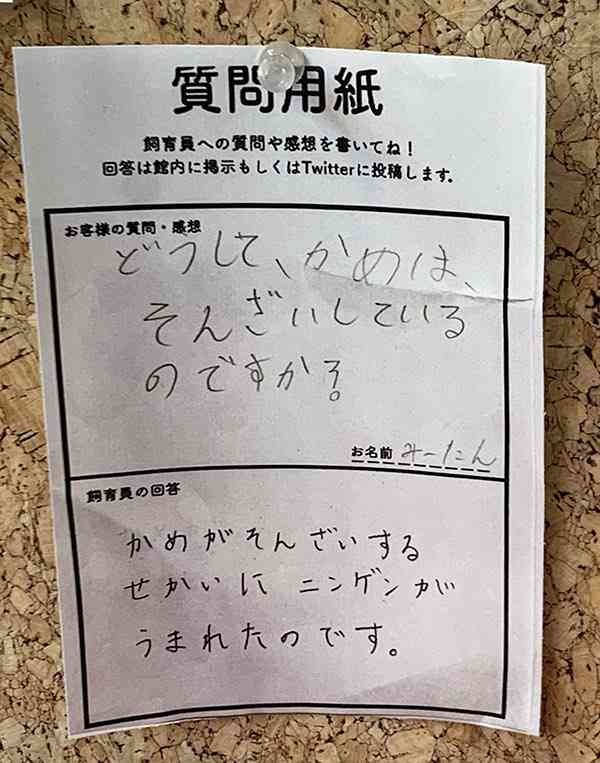 質問用紙
飼育員への質問や感想を書いてね！
回答は館内に掲示もしくはTwitterに投稿します。
お客様の質問・感想
どうして、かめは、
そんざいしている
のですか？
お名前 みーたん
飼育員の回答
かめがそんざいする
せかいに ニンゲンが
うまれたのです。